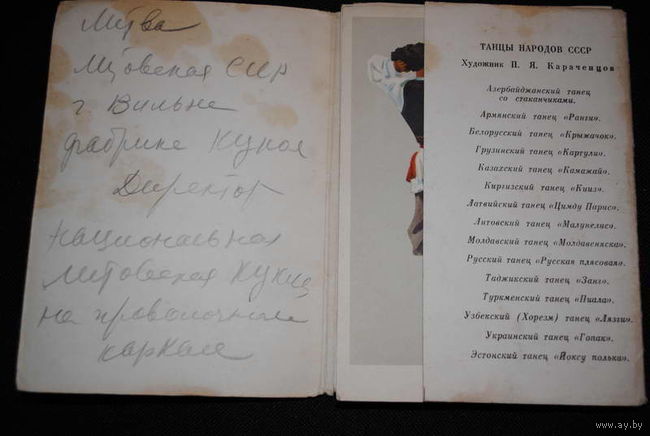 Литва
Литовская ССР
г Вильне
фабрике кукол
Директор
Национальная
литовская кукла
на проволочном
каркасе
ТАНЦЫ НАРОДОВ СССР
Художник П. Я. Караченцов
Азербайджанский танец
со стаканчиками.
Армянский танец «Ранги».
Белорусский танец «Крыжачок».
Грузинский танец «Картули».
Казахский танец «Камажай».
Киргизский танец «Кииз».
Латвийский танец «Цимду Парис».
Литовский танец «Малунелис».
Молдавский танец «Молдавеняска».
Русский танец «Русская плясовая».
Таджикский танец «Занг».
Туркменский танец «Пиала».
Узбекский (Хорезм) танец «Лязги».
Украинский танец «Гопак».
Эстонский танец «Йоксу полька».
www.ay.by